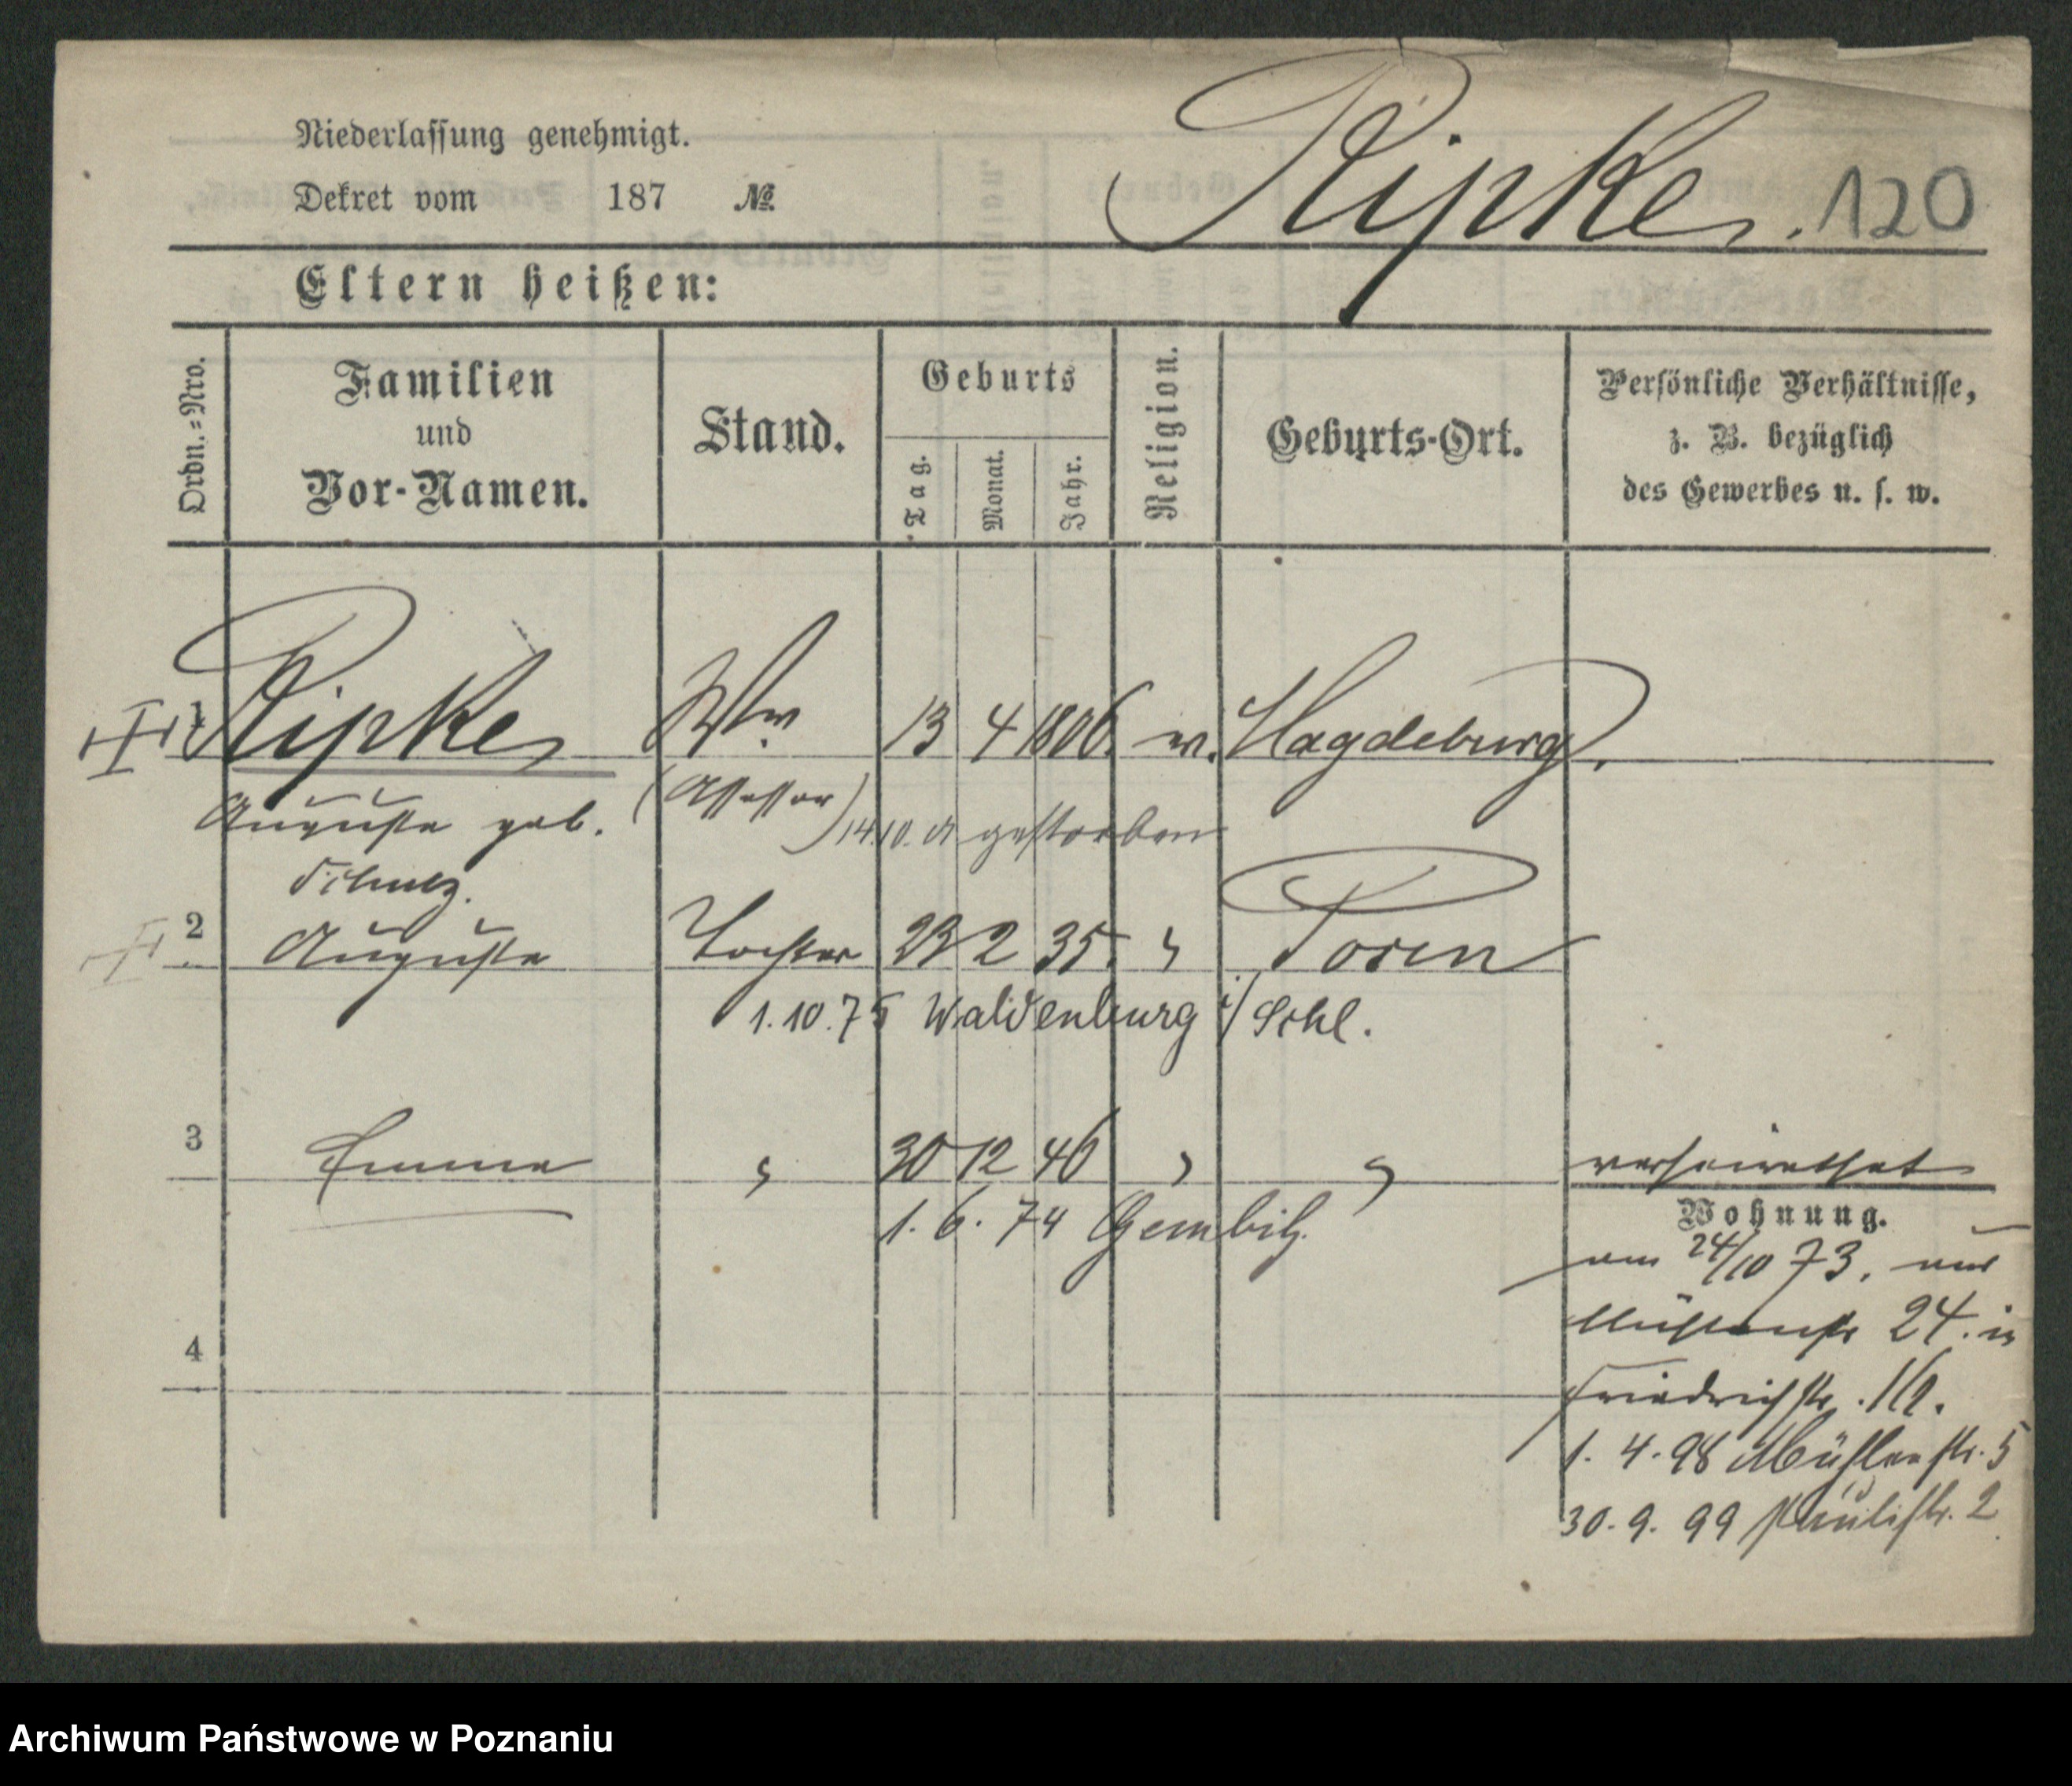 Niederlassung genehmigt.
Dekret vom 187 №
Ripke. 120
Eltern heißen:
Ordn.=Nro.
Familien
und
Vor-Namen.
Stand.
Geburts
Tag.
Monat.
Jahr.
Religion.
Geburts-Ort.
Persönliche Verhältnisse,
z. B. bezüglich
des Gewerbes u. s. w.
1 Ripke Ww. 13 4 1806. Magdeburg.
Auguste geb. (Assessor)
14.10. gestorben
Schulz.
2 Auguste Tochter 23 2 35. " Posen
1.10.75 Waldenburg i/Schl.
3 Emma " 30 12 46 " " verheirathet
1. 6. 74 Gembitz.
Wohnung.
am 24/10 73. aus
24. in
4
Friedrichstr.
1. 4. 98 Mühlenstr. 5
30. 9. 99 Paulistr. 2
Archiwum Państwowe w Poznaniu